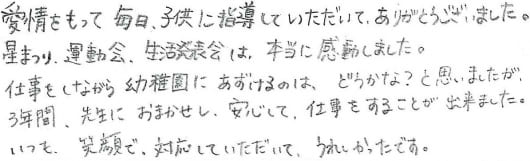 愛情をもって毎日、子供に指導していただいて、ありがとうございました。
星まつり、運動会、生活発表会は、本当に感動しました。
仕事をしながら幼稚園にあずけるのは、どうかな?と思いましたが、
3年間、先生におまかせし、安心して、仕事をすることが出来ました。
いつも、笑顔で、対応していただいて、うれしかったです。